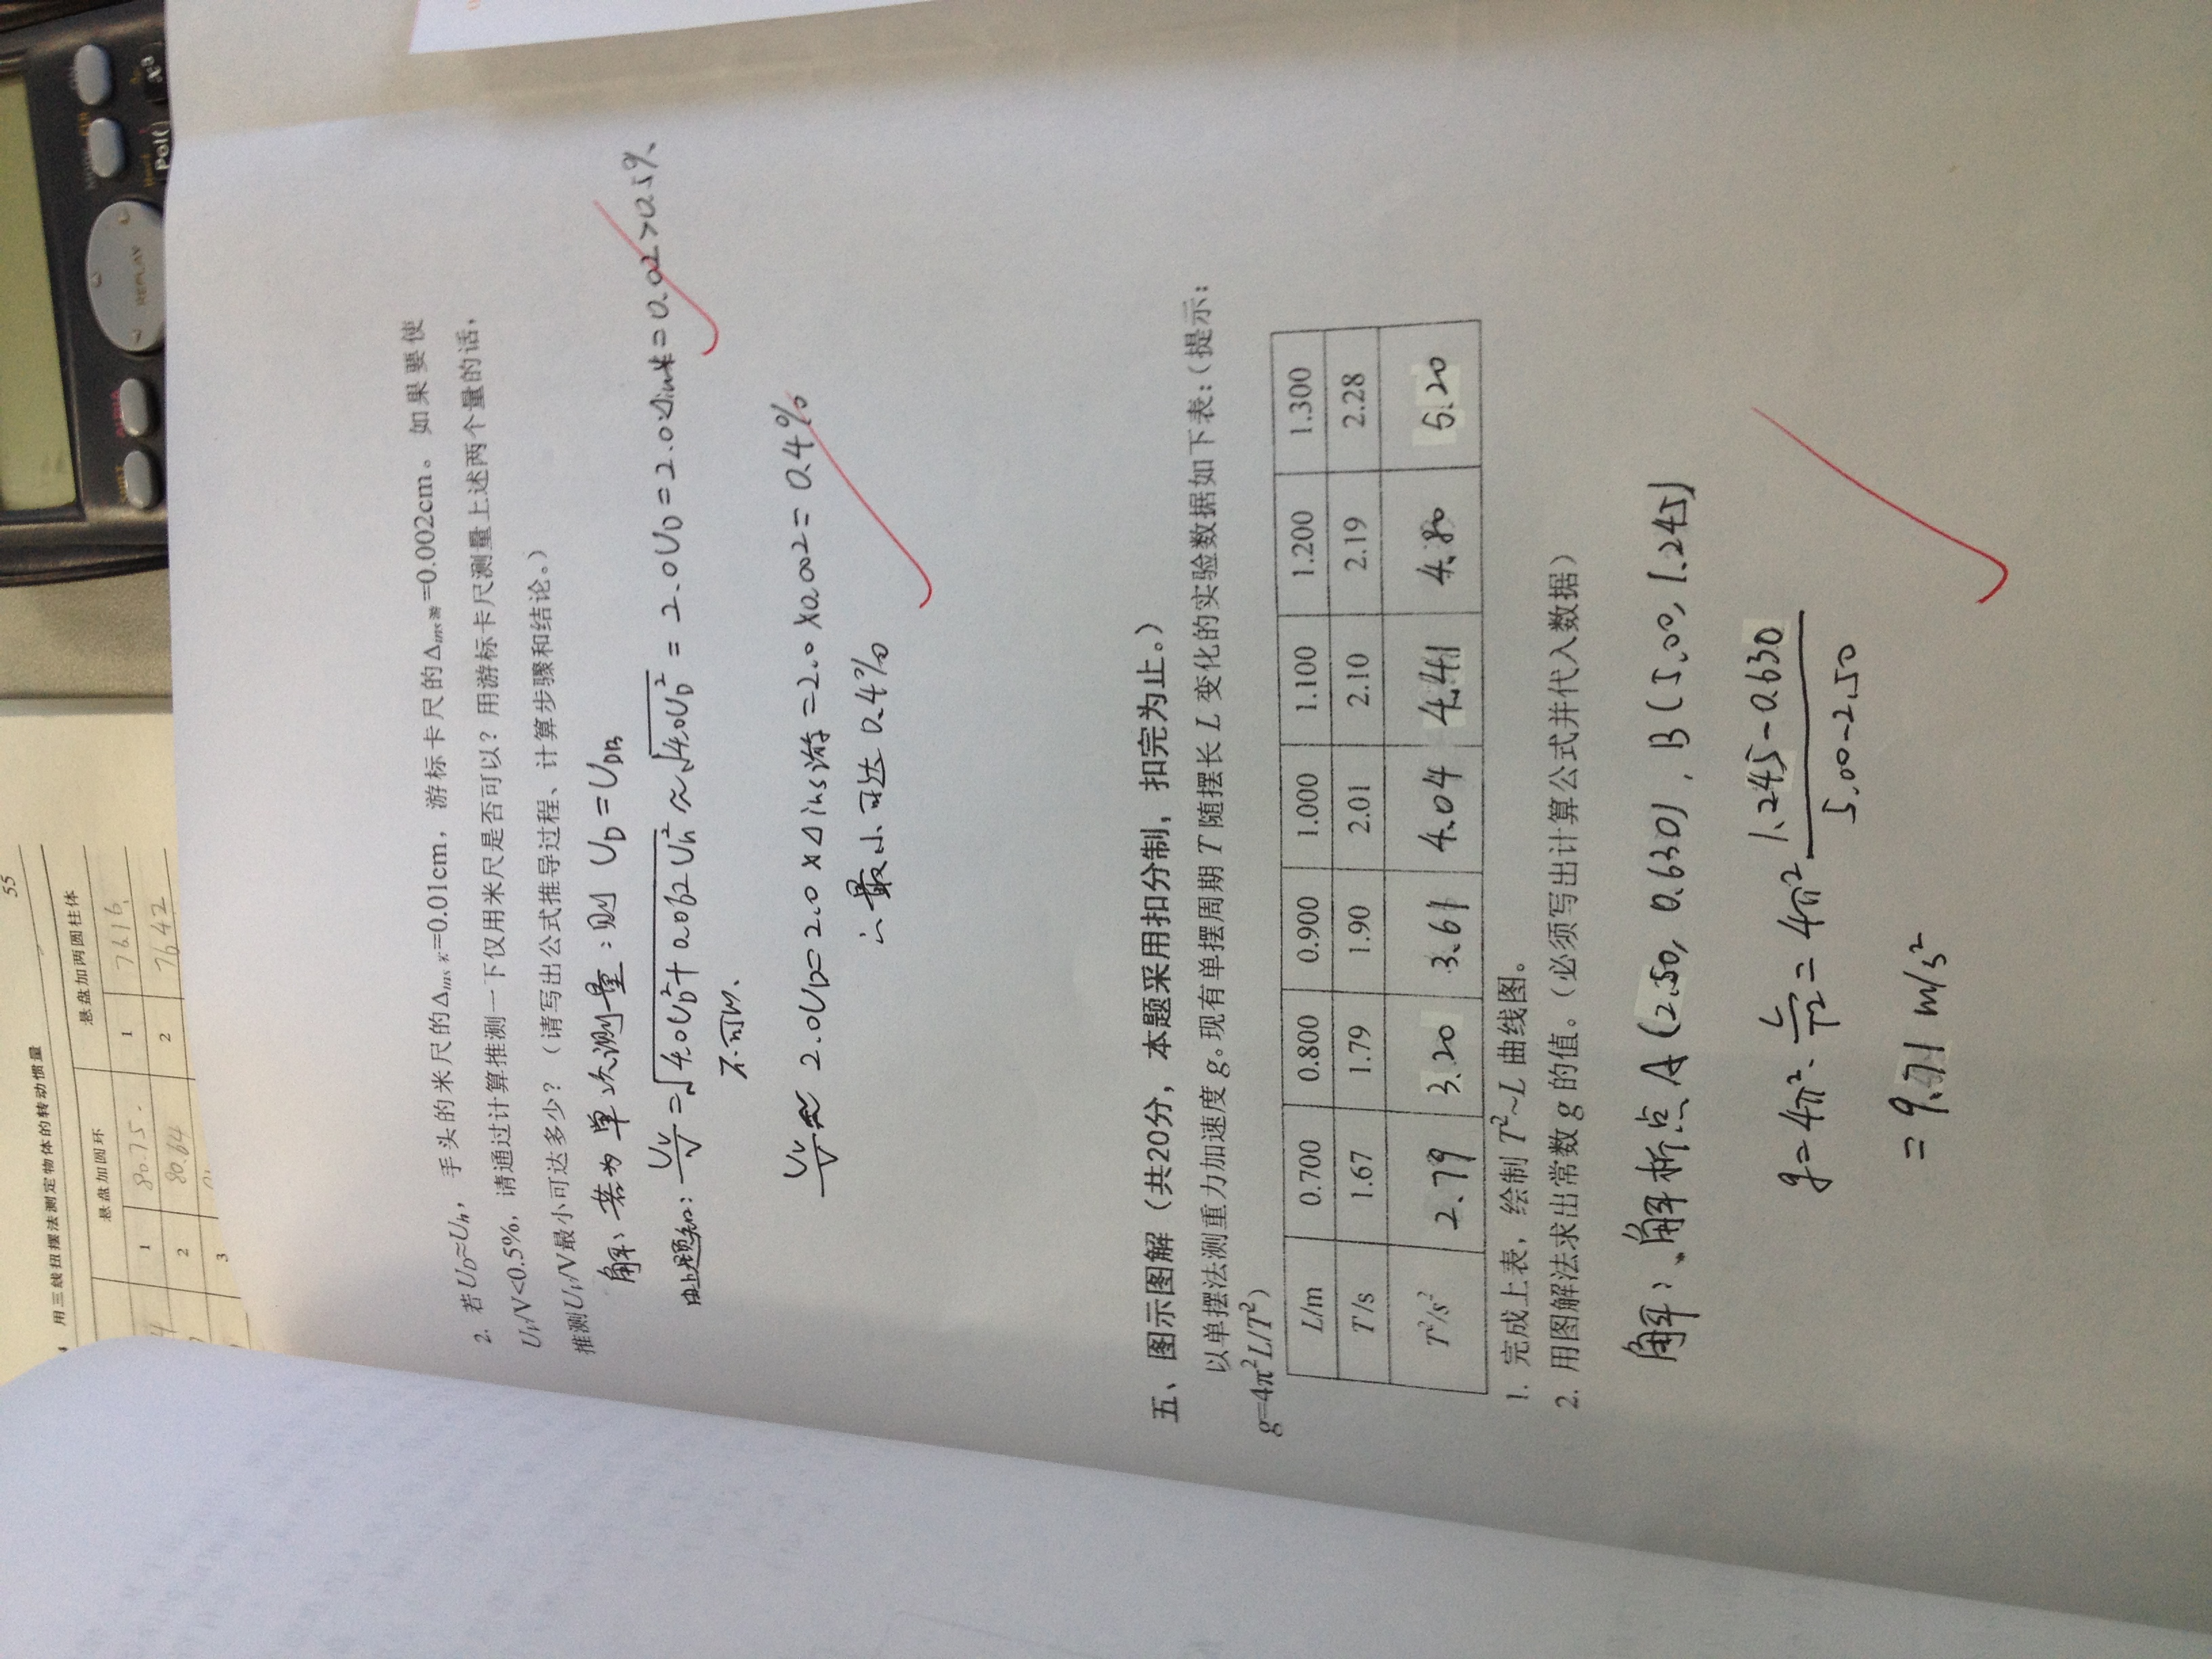 55
用三线扭摆法测定物体的转动惯量
悬盘加圆环 悬盘加两圆柱体
1 80.75 1 76.16
2 80.64 2 76.42
3
SHIFT ALPHA REPLAY
Pol( x³
2. 若U_D≈U_h，手头的米尺的Δ_ins米=0.01cm，游标卡尺的Δ_ins游=0.002cm。如果要使
U_V/V<0.5%，请通过计算推测一下仅用米尺是否可以？用游标卡尺测量上述两个量的话，
推测U_V/V最小可达多少？（请写出公式推导过程、计算步骤和结论。）
解：若为单次测量：则 U_D=U_DB
由上题知：U_V/V=√(4.0U_D²+0.062U_h²)≈√(4.0U_D²)=2.0U_D=2.0·Δins米=0.02>0.5%
不可以.
U_V/V≈2.0U_D=2.0×Δins游=2.0×0.002=0.4%
∴最小可达0.4%
五、图示图解（共20分，本题采用扣分制，扣完为止。）
以单摆法测重力加速度g。现有单摆周期T随摆长L变化的实验数据如下表：（提示：
g=4π²L/T²）
L/m 0.700 0.800 0.900 1.000 1.100 1.200 1.300
T/s 1.67 1.79 1.90 2.01 2.10 2.19 2.28
T²/s² 2.79 3.20 3.61 4.04 4.41 4.80 5.20
1. 完成上表，绘制T²~L曲线图。
2. 用图解法求出常数g的值。（必须写出计算公式并代入数据）
解：解析点A(2.50, 0.630), B(5.00, 1.245)
g=4π²·L/T²=4π² (1.245-0.630)/(5.00-2.50)
=9.71 m/s²